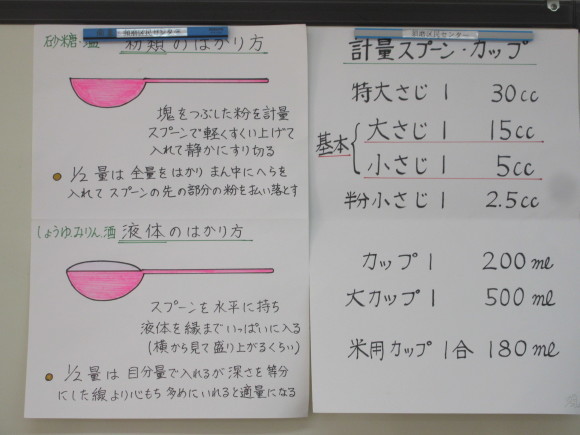 砂糖・塩 粉類のはかり方
塊をつぶした粉を計量
スプーンで軽くすくい上げて
入れて静かにすり切る
1/2 量は 全量をはかり まん中にへらを
入れて スプーンの先の部分の粉を払い落とす
しょうゆ、みりん、酒 液体のはかり方
スプーンを水平に持ち
液体を縁までいっぱいに入る
(横から見て盛り上がるくらい)
1/2 量は 目分量で入れるが深さを等分
にした線より心もち多めにいれると適量になる
区民センター
計量スプーン・カップ
特大さじ 1 30cc
基本
大さじ 1 15cc
小さじ 1 5cc
半分小さじ 1 2.5cc
カップ 1 200ml
大カップ 1 500ml
米用カップ 1合 180ml